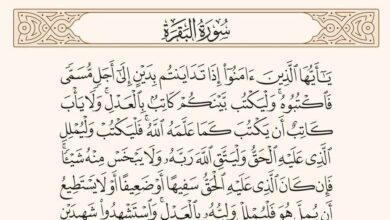 سُورَةُ البَقَرَةِ
يَـٰٓأَيُّهَا ٱلَّذِينَ ءَامَنُوٓا۟ إِذَا تَدَايَنتُم بِدَيْنٍ إِلَىٰٓ أَجَلٍ مُّسَمًّى
فَٱكْتُبُوهُ ۚ وَلْيَكْتُب بَّيْنَكُمْ كَاتِبٌۢ بِٱلْعَدْلِ ۚ وَلَا يَأْبَ
كَاتِبٌ أَن يَكْتُبَ كَمَا عَلَّمَهُ ٱللَّهُ ۚ فَلْيَكْتُبْ وَلْيُمْلِلِ
ٱلَّذِى عَلَيْهِ ٱلْحَقُّ وَلْيَتَّقِ ٱللَّهَ رَبَّهُۥ وَلَا يَبْخَسْ مِنْهُ شَيْـًٔا ۚ
فَإِن كَانَ ٱلَّذِى عَلَيْهِ ٱلْحَقُّ سَفِيهًا أَوْ ضَعِيفًا أَوْ لَا يَسْتَطِيعُ
أَن يُمِلَّ هُوَ فَلْيُمْلِلْ وَلِيُّهُۥ بِٱلْعَدْلِ ۚ وَٱسْتَشْهِدُوا۟ شَهِيدَيْنِ